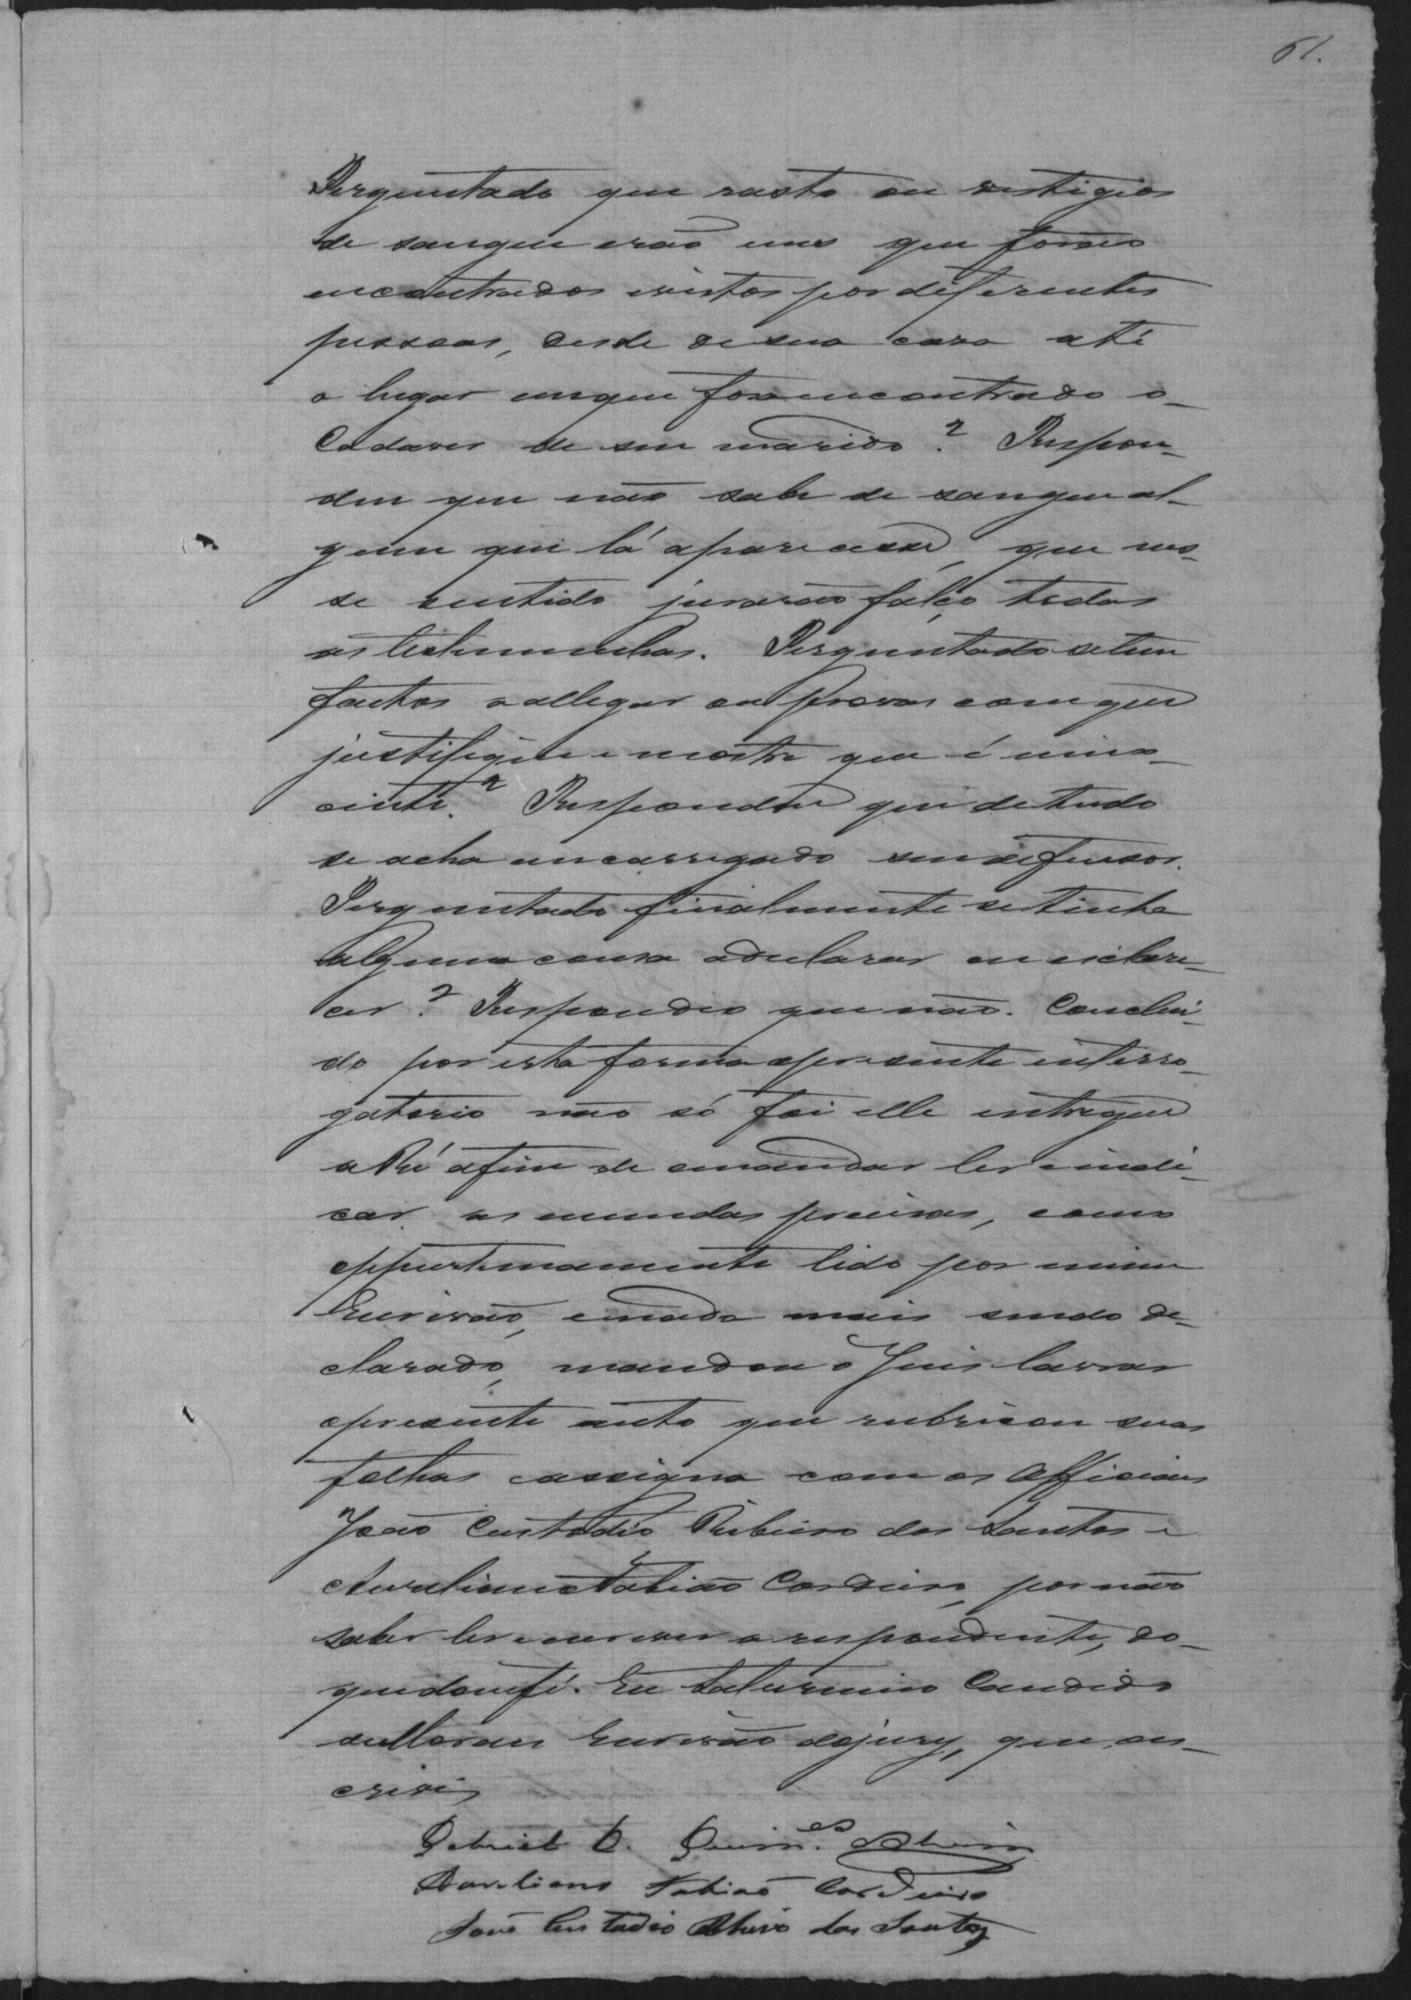 61.
Perguntado que rasto ou vestigios
de sangue erão uns que forão
encontrados e vistos por diferentes
pessoas, desde de sua casa até
o lugar em que fora encontrado o
Cadaver de seu marido? Respon-
deu que não sabe de sangue al-
gum que lá aparecesse, que nes-
se sentido jurarão falço todas
as testemunhas. Perguntado se tem
factos a allegar ou provas com que
justifique e mostre que é inno-
cente? Respondeu que de tudo
se acha encarregado seu defensor.
Perguntado finalmente se tinha
alguma cousa a declarar ou esclare-
cer? Respondeo que não. Conclui-
do por esta forma o presente interro-
gatorio não só foi elle entregue
a Ré afim de emandar ler e indi-
car as emendas precisas, como
oppurtunamente lido por mim
Escrivão, e nada mais sendo de-
clarado, mandou o Juis lavrar
o presente auto que rubricou suas
folhas e assigna com os Officiaes
João Custodio Ribeiro dos Santos e
Aureliano Fabião Cordeiro, por não
saber ler e escrever a respondente, do
que dou fé. Eu Saturnino Candido
Escrivão do jury, que es-
crevi
Gabriel O. Guim.es
Aureliano Fabião Cordeiro
João Custodio Ribeiro dos Santos